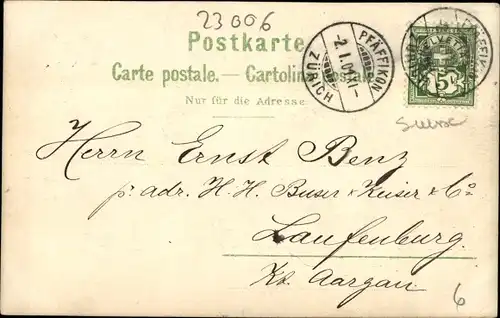 23006
Postkarte
Carte postale. — Cartolina postale
Nur für die Adresse
PFÄFFIKON
-2.I.0
XI-
ZÜRICH
HELVETIA
5
Suisse
Herrn Ernst Benz
p. adr. H. H. Buser & Keiser & Co
Laufenburg.
Kt. Aargau.
6